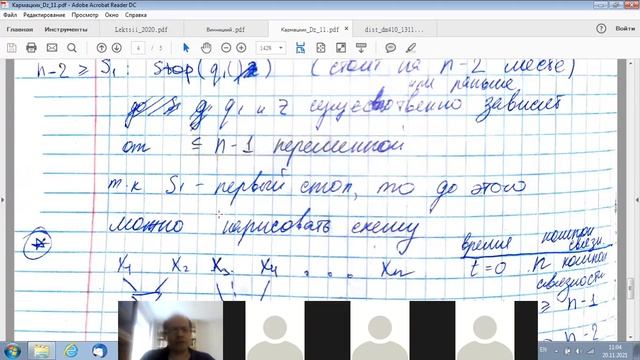 Кармацких_Dz_11.pdf - Adobe Acrobat Reader DC
Файл Редактирование Просмотр Подписание Окно Справка
Главная Инструменты Lektsii_2020.pdf Винницкий.pdf Кармацких_Dz_11.pdf dist_dm410_1311...
4 / 5 142%
n-2 ≥ S₁ : Stop(q₁( )) (стоит на n-2 месте)
или раньше
q₁ и z существенно зависят
от ≤ n-1 переменной
т.к. S₁ - первый стоп, то до этого
можно нарисовать схему
время компон связн
X₁ X₂ X₃ X₄ . . . Xₙ t=0 n компон
связности
≥ n-1
n-2
EN 11:04
20.11.2021